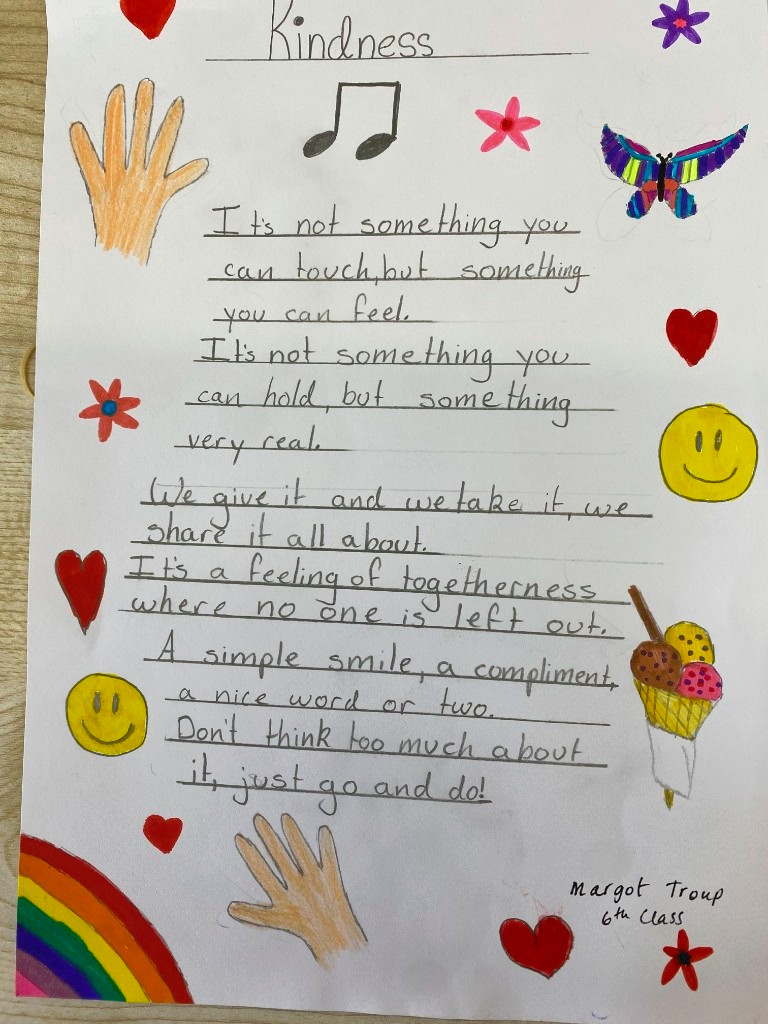 Kindness
It's not something you
can touch, but something
you can feel.
It's not something you
can hold, but something
very real.
We give it and we take it, we
share it all about.
It's a feeling of togetherness
where no one is left out.
A simple smile, a compliment,
a nice word or two.
Don't think too much about
it, just go and do!
Margot Troup
6th Class